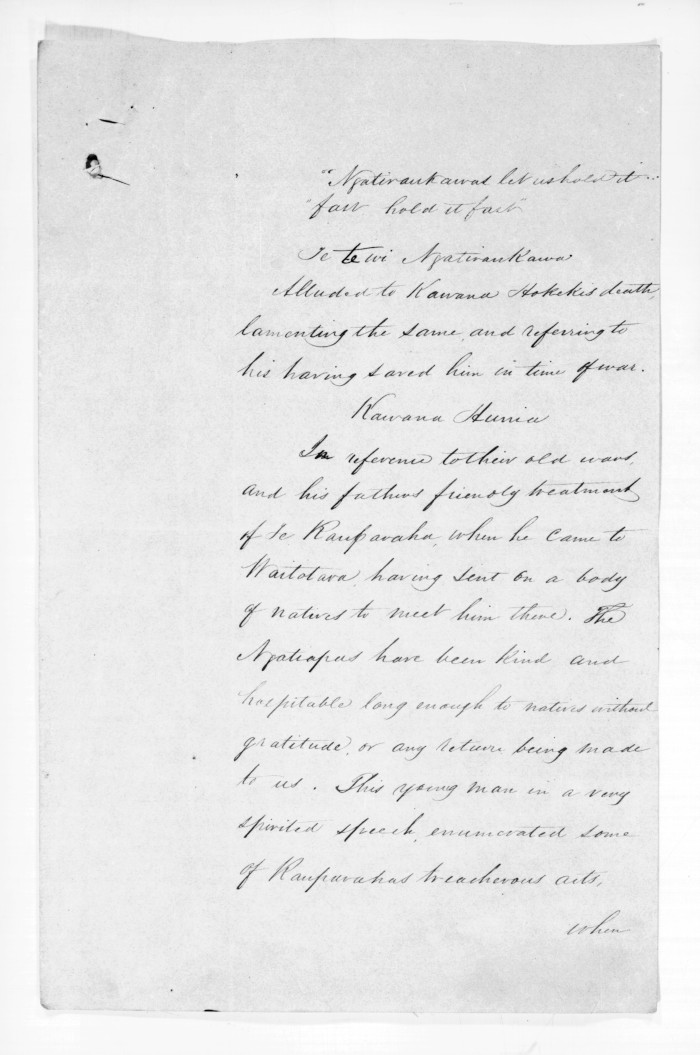 "Ngatiraukawas let us hold it
"fast hold it fast"
Te te wi Ngatiraukawa
Alluded to Kawana Hokekes death,
lamenting the same, and referring to
his having saved him in time of war.
Kawana Hunia
In reference to their old wars,
and his fathers friendly treatment
of Te Rauparaha, when he came to
Waitotara, having sent on a body
of natives to meet him there. The
Ngatiapas have been kind and
hospitable long enough to natives without
gratitude, or any return being made
to us. This young man in a very
spirited speech, enumerated some
of Rauparahas treacherous acts,
when